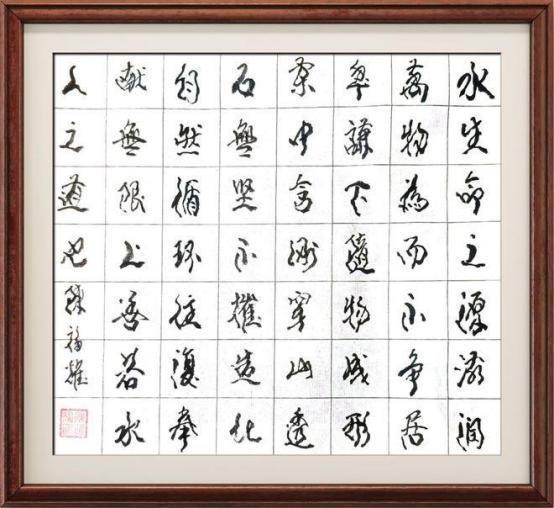 水生命之源滋润
萬物為而不争居
卑謙下随物成形
柔中含刚穿山透
石無坚不摧造化
自然循环往復奉
献無限上善若水
人之道也陳福耀